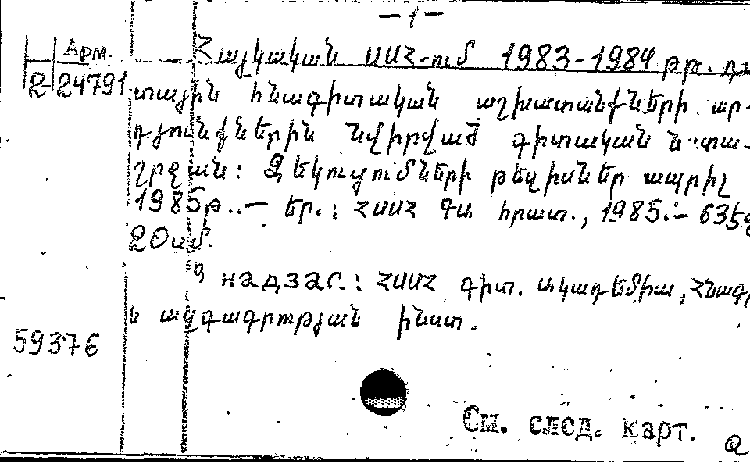 — 1 —
Арм.
2 24791
Հայկական ՍՍՀ-ում 1983-1984 թթ. դա
տային հնագիտական աշխատանքների ար-
դյունքներին նվիրված գիտական նստա-
շրջան: Զեկուցումների թեզիսներ ապրիլ
1985թ..— Եր.: ՀՍՍՀ ԳԱ հրատ., 1985.— 63էջ
20սմ.
В надзаг.: ՀՍՍՀ գիտ. ակադեմիա, Հնագ
և ազգագրության ինստ.
59376
См. след. карт.